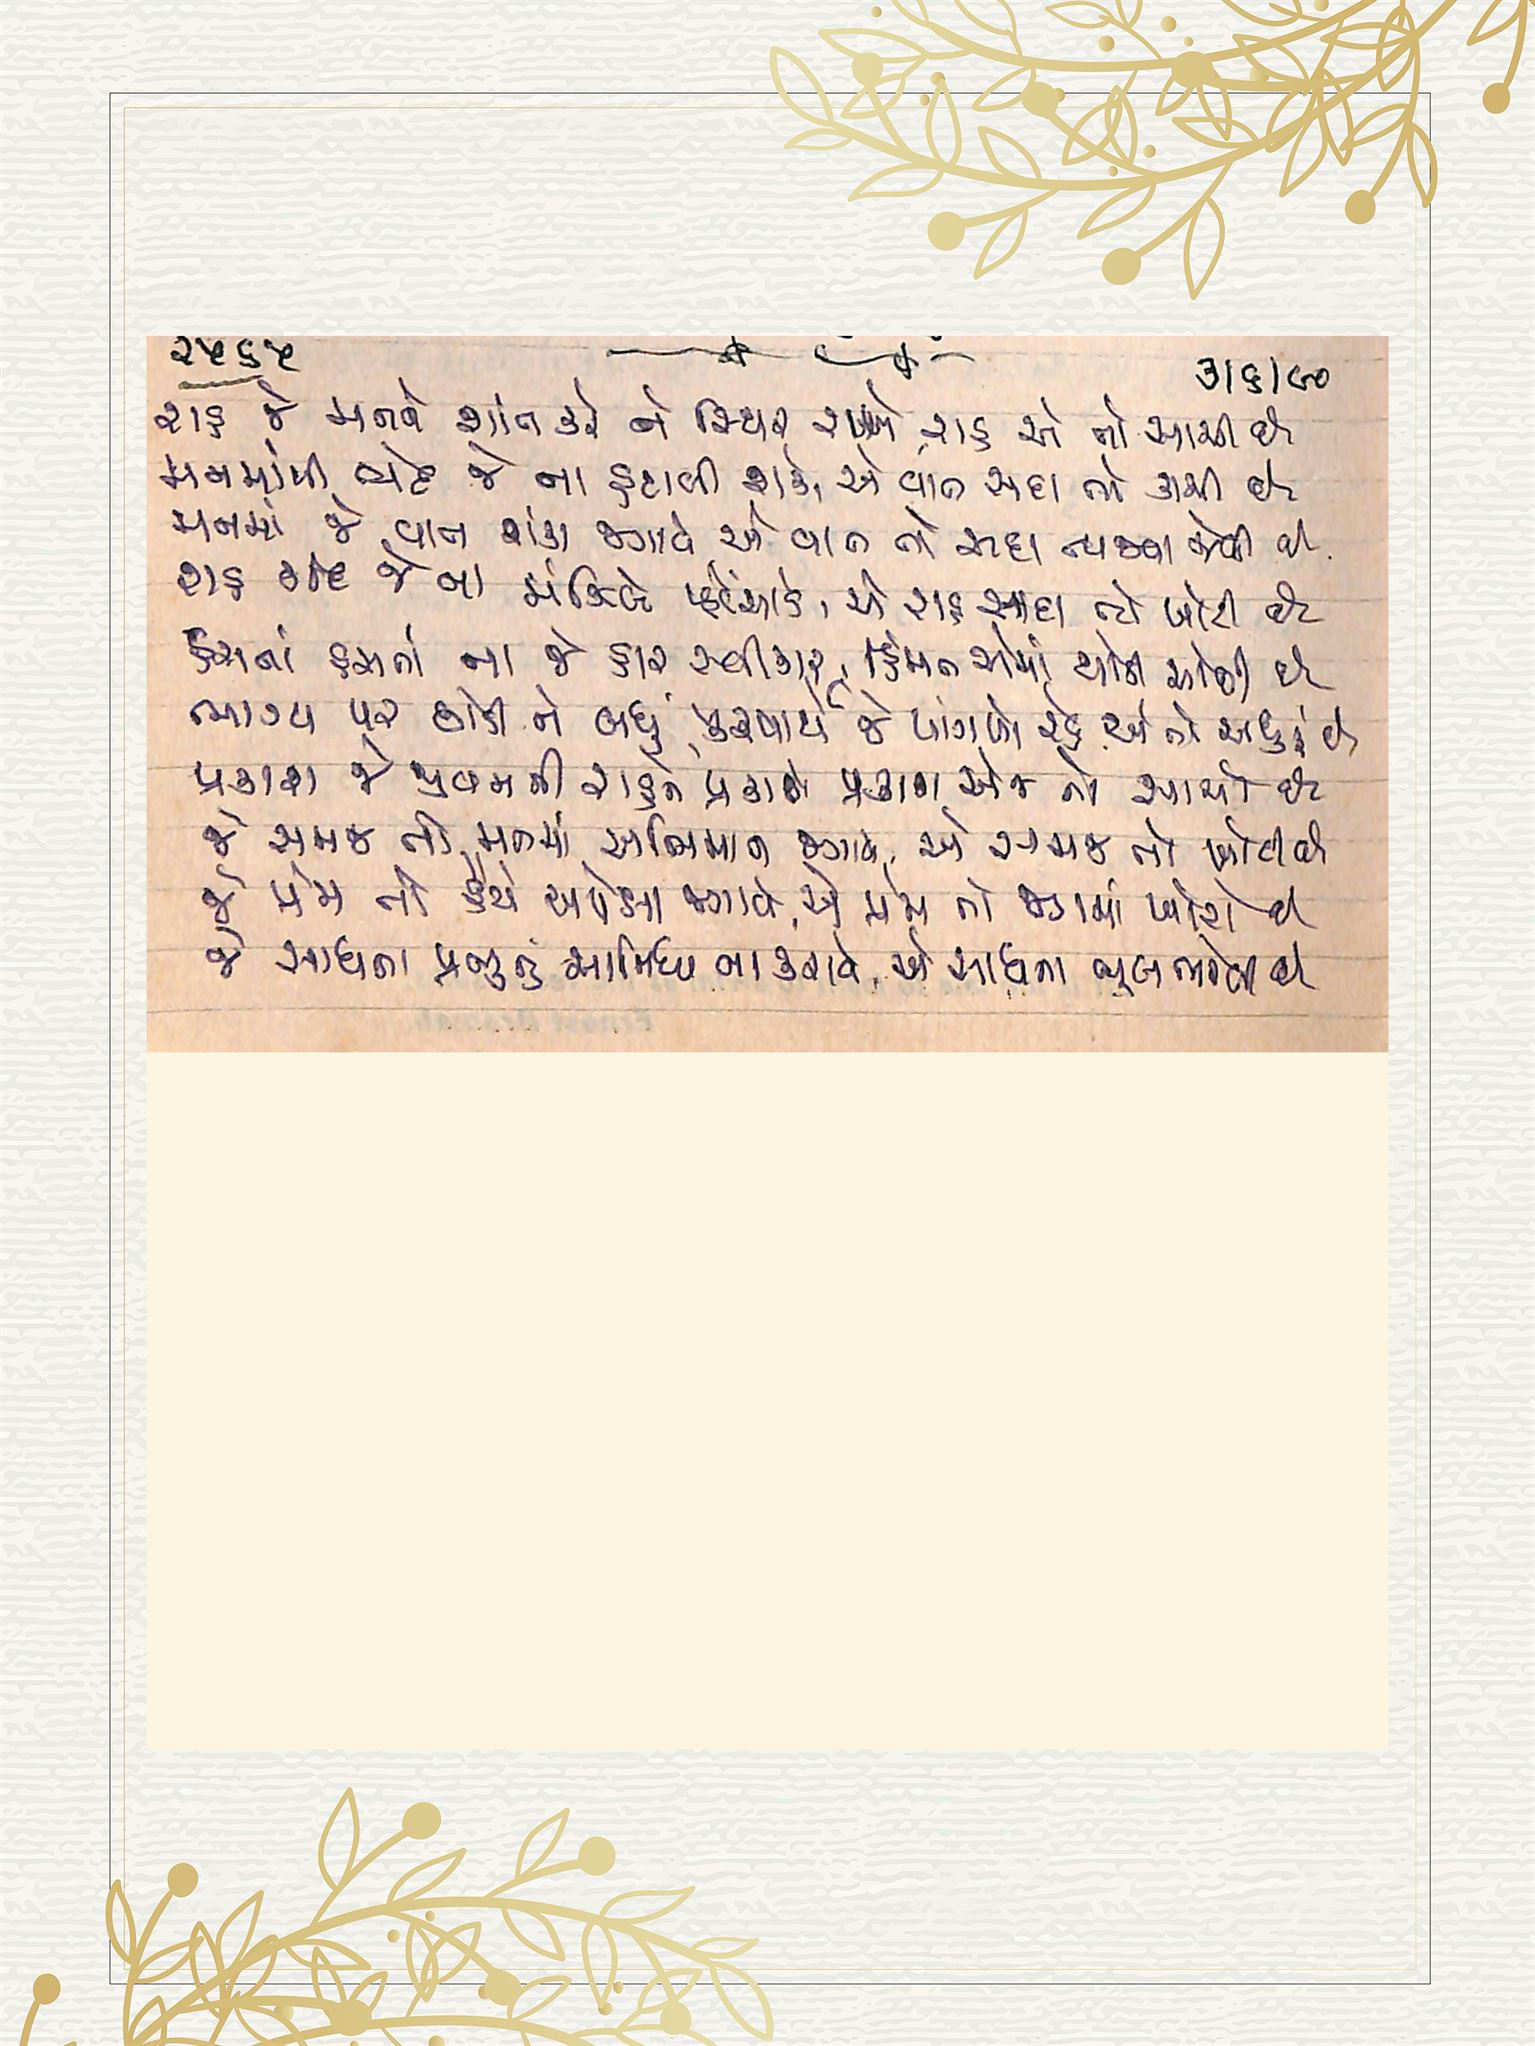 ૨૫૬૫
૩/૬/૯૦
રાહ જે મનને શાંત કરે ને સ્થિર રાખે, રાહ એ તો સાચી છે
મનમાંથી લોભ જે ના હટાવી શકે, એ વાત સદા તો કાચી છે
મનમાં જે વાત શંકા જગાવે એ વાત તો સદા ત્યજવા જેવી છે.
રાહ જે ના મંઝિલે પહોંચાડે, એ રાહ સદા તો ખોટી છે
હસતાં હસતાં ના જે હાર સ્વીકારે, હિંમત એમાં થોડી ઓછી છે
ભાગ્ય પર છોડી ને બધું, કરવાયે જે પાંગળો રહે એ તો અધુરું છે
પ્રકાશ જે પ્રીતમની રાહને પ્રકાશે પ્રકાશ એજ તો સાચો છે
જે સમજ તો મનમાં અભિમાન જગાવે, એ સમજ તો ખોટી છે
જે પ્રેમ તો હૈયે અપેક્ષા જગાવે, એ પ્રેમ તો જગમાં ખોટો છે
જે સાધના પ્રભુનું સાનિધ્ય ના કરાવે, એ સાધના ભૂલ ભરેલી છે